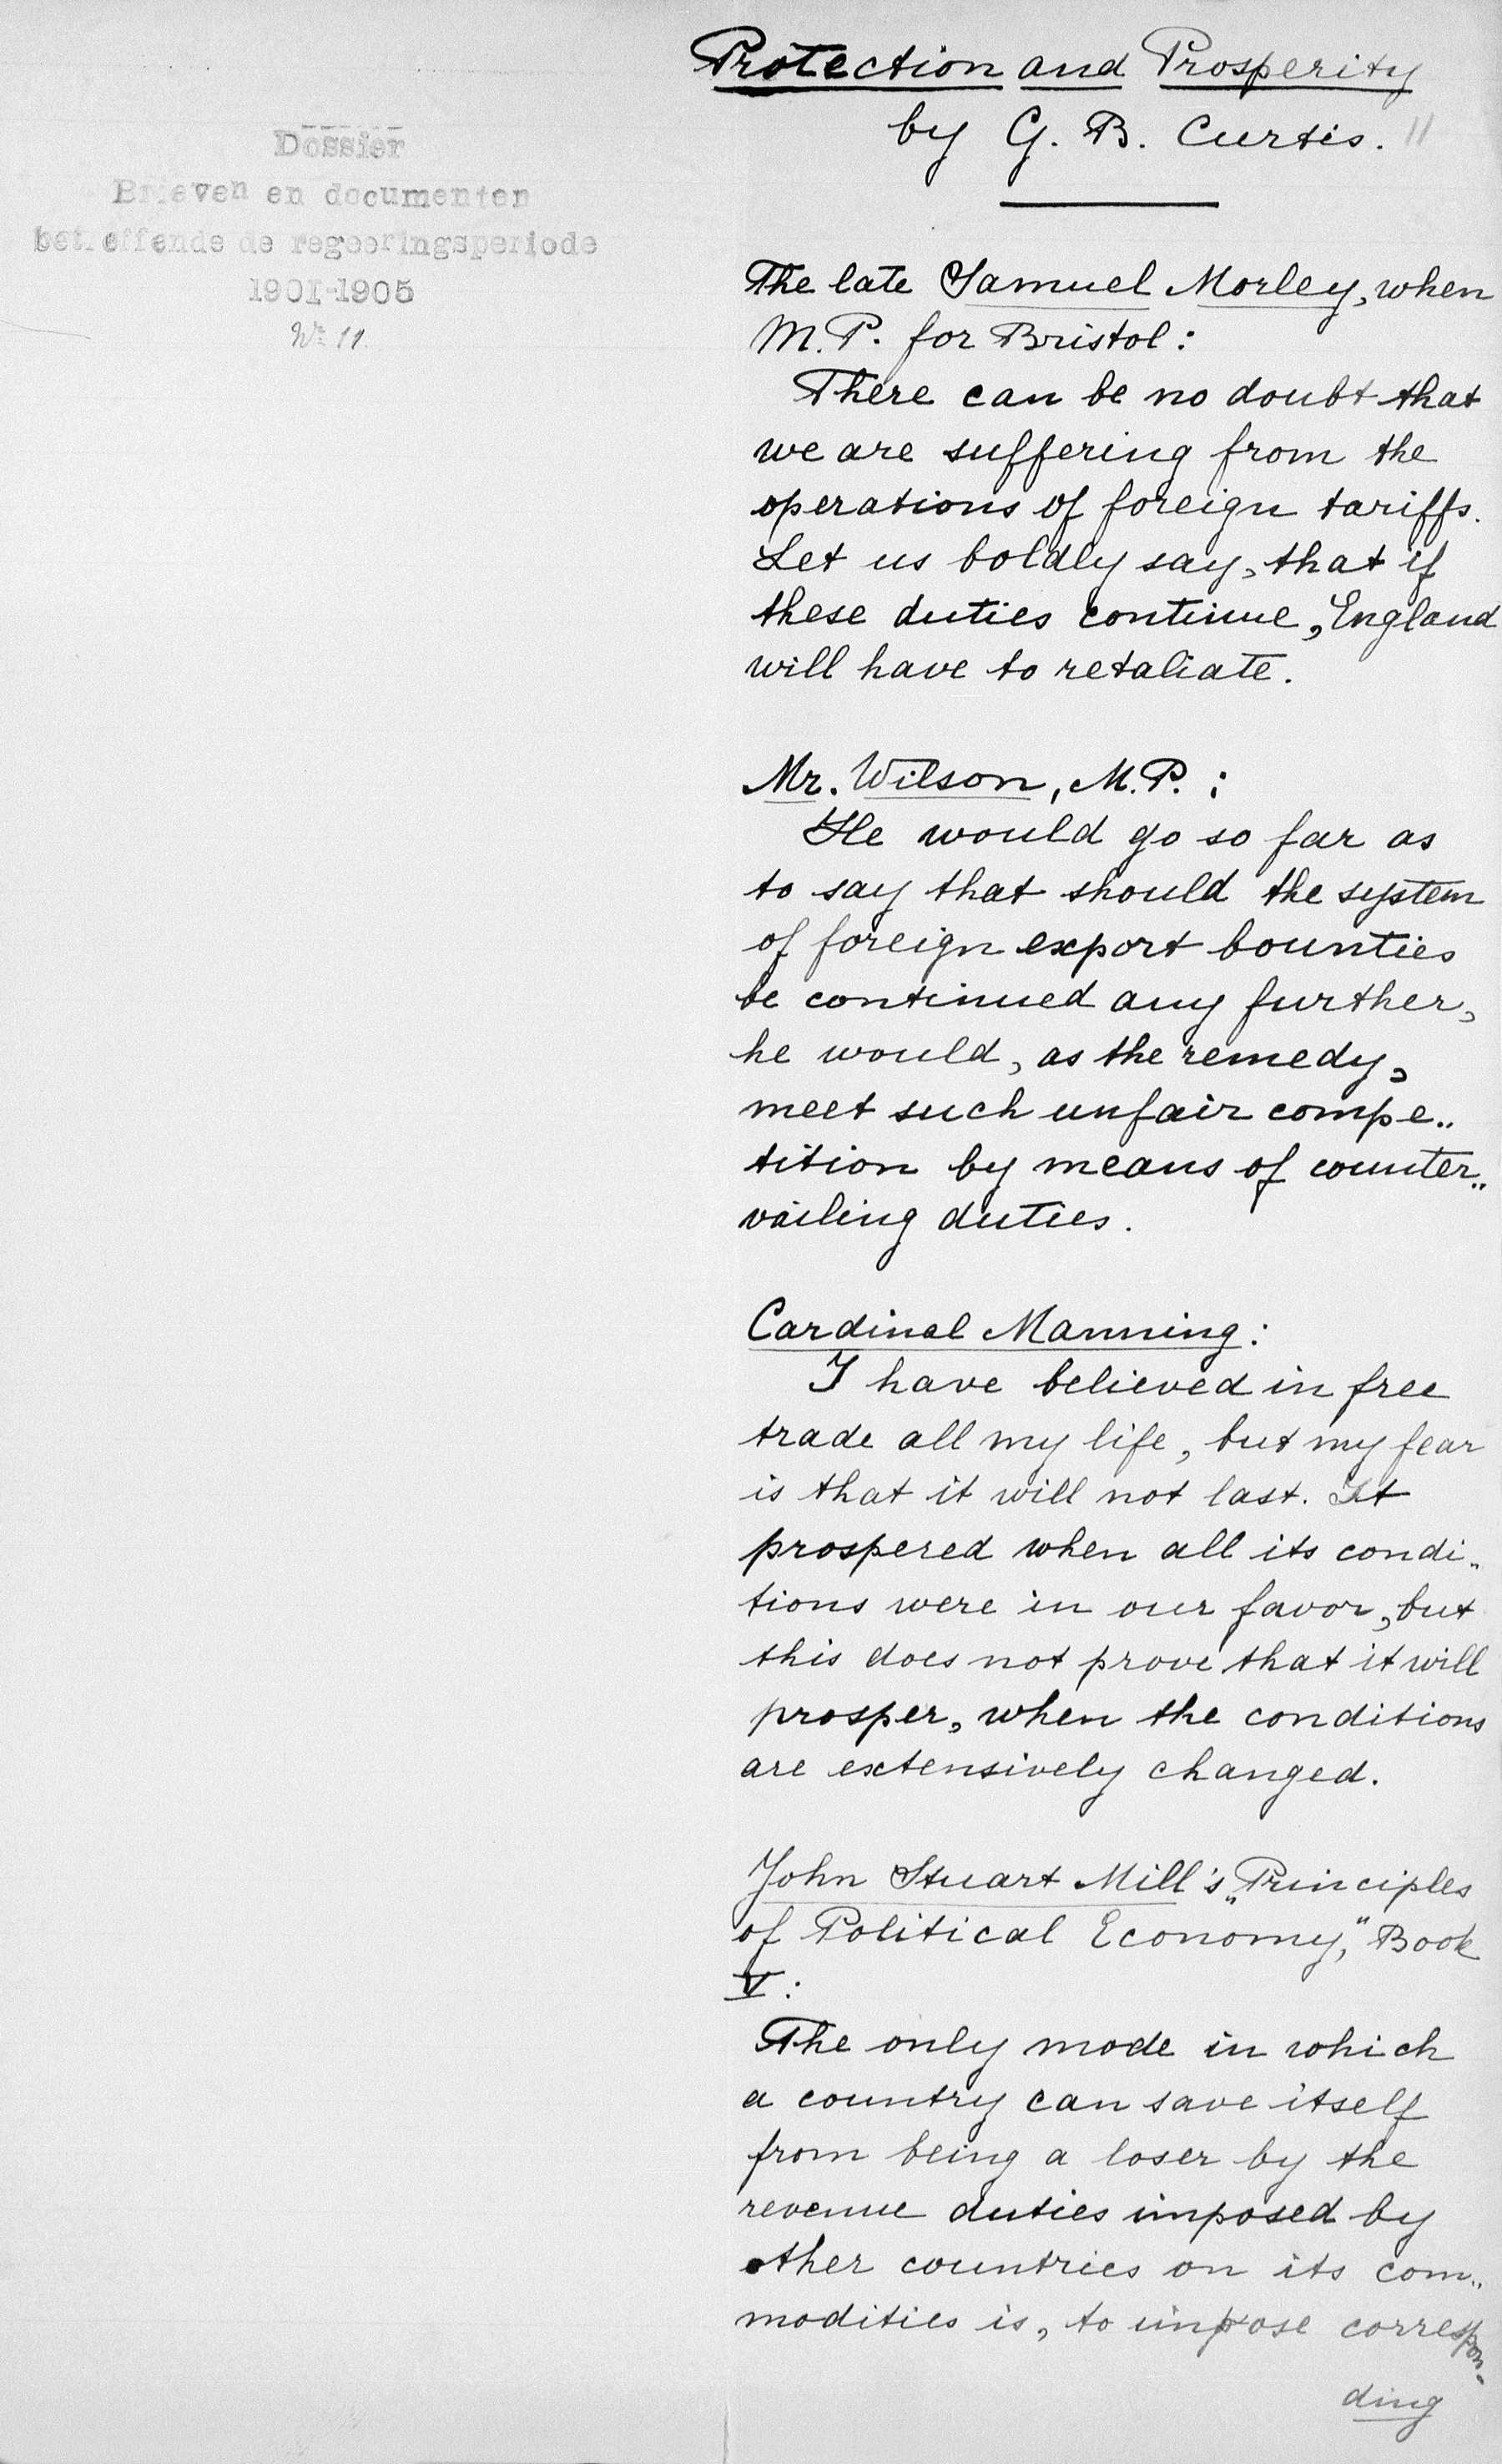 Protection and Prosperity
by G. B. Curtis. 11
Dossier
Brieven en documenten
betreffende de regeeringsperiode
1901-1905
No 11.
The late Samuel Morley, when
M.P. for Bristol:
There can be no doubt that
we are suffering from the
operations of foreign tariffs.
Let us boldly say, that if
these duties continue, England
will have to retaliate.
Mr. Wilson, M.P. :
He would go so far as
to say that should the system
of foreign export bounties
be continued any further,
he would, as the remedy,
meet such unfair compe..
tition by means of counter..
vailing duties.
Cardinal Manning:
I have believed in free
trade all my life, but my fear
is that it will not last. It
prospered when all its condi..
tions were in our favor, but
this does not prove that it will
prosper, when the conditions
are extensively changed.
John Stuart Mill's „Principles
of Political Economy," Book
V:
The only mode in which
a country can save itself
from being a loser by the
revenue duties imposed by
other countries on its com..
modities is, to impose correspon-
ding